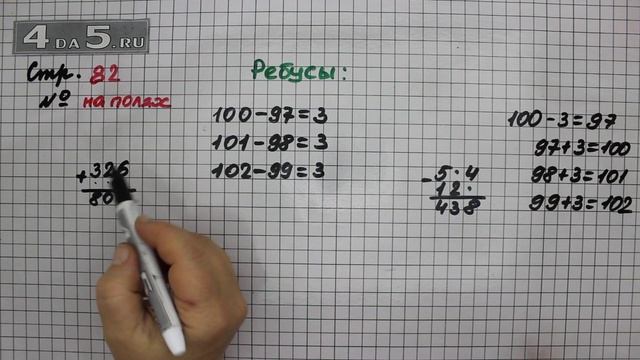 4 DA 5.RU
Стр. 82
№ на полях
Ребусы:
100-97=3
101-98=3
102-99=3
+326
80
-5·4
12·
438
100-3=97
97+3=100
98+3=101
99+3=102